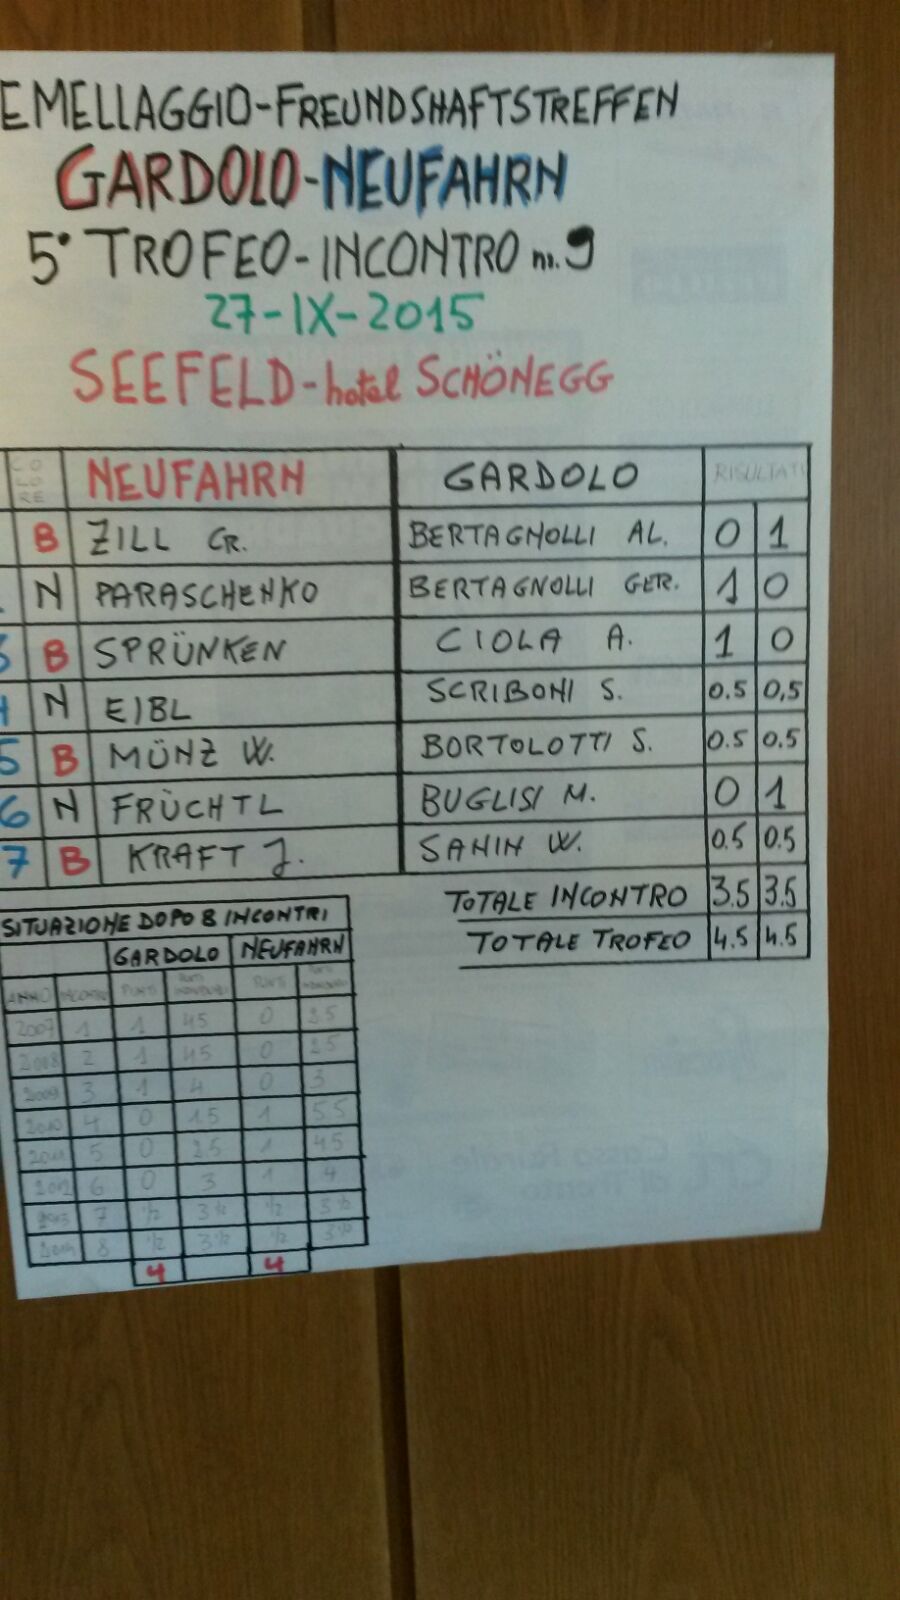 EMELLAGGIO-FREUNDSHAFTSTREFFEN
GARDOLO-NEUFAHRN
5° TROFEO-INCONTRO nr. 9
27-IX-2015
SEEFELD-hotel SCHÖNEGG
COLORE NEUFAHRN GARDOLO RISULTATI
B ZILL CR. BERTAGNOLLI AL. 0 1
N PARASCHENKO BERTAGNOLLI GER. 1 0
3 B SPRÜNKEN CIOLA A. 1 0
4 N EIBL SCRIBONI S. 0.5 0,5
5 B MÜNZ W. BORTOLOTTI S. 0.5 0.5
6 N FRÜCHTL BUGLISI M. 0 1
7 B KRAFT J. SANIN W. 0.5 0.5
TOTALE INCONTRO 3.5 3.5
TOTALE TROFEO 4.5 4.5
SITUAZIONE DOPO 8 INCONTRI
GARDOLO NEUFAHRN
ANNO INCONTRO PUNTI PUNTI
2007 1 1 45 0 25
2008 2 1 45 0 25
2009 3 1 4 0 3
2010 4 0 15 1 5.5
2011 5 0 25 1 45
2012 6 0 3 1 4
2013 7 1/2 3 1/2 1/2 3 1/2
2014 8 1/2 3 1/2 1/2 3 1/2
4 4